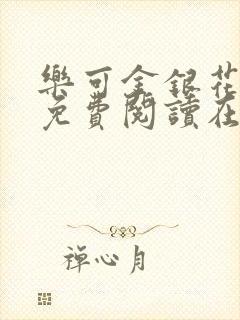 樂可金銀花
免費閱讀在
禪心月